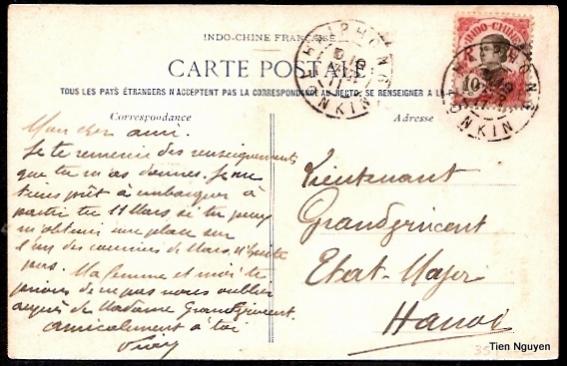 INDO-CHINE FRANÇAISE
CARTE POSTALE
TOUS LES PAYS ÉTRANGERS N'ACCEPTENT PAS LA CORRESPONDANCE AU RECTO, SE RENSEIGNER A LA
Correspondance
Adresse
INDO-CHINE
10
HAIPHONG
TONKIN
HAIPHONG
TONKIN
Mon cher ami.
Je te remercie des renseignements
que tu m'as donnés. Je me
tiens prêt à embarquer à
partir du 11 Mars si tu peux
m'obtenir une place sur
l'un des courriers de Mars, n'hésite
pas. Ma femme et moi te
prions de ne pas nous oublier
auprès de Madame Grandgirent
amicalement à toi
Lieutenant
Etat-Major
Hanoi
Tien Nguyen